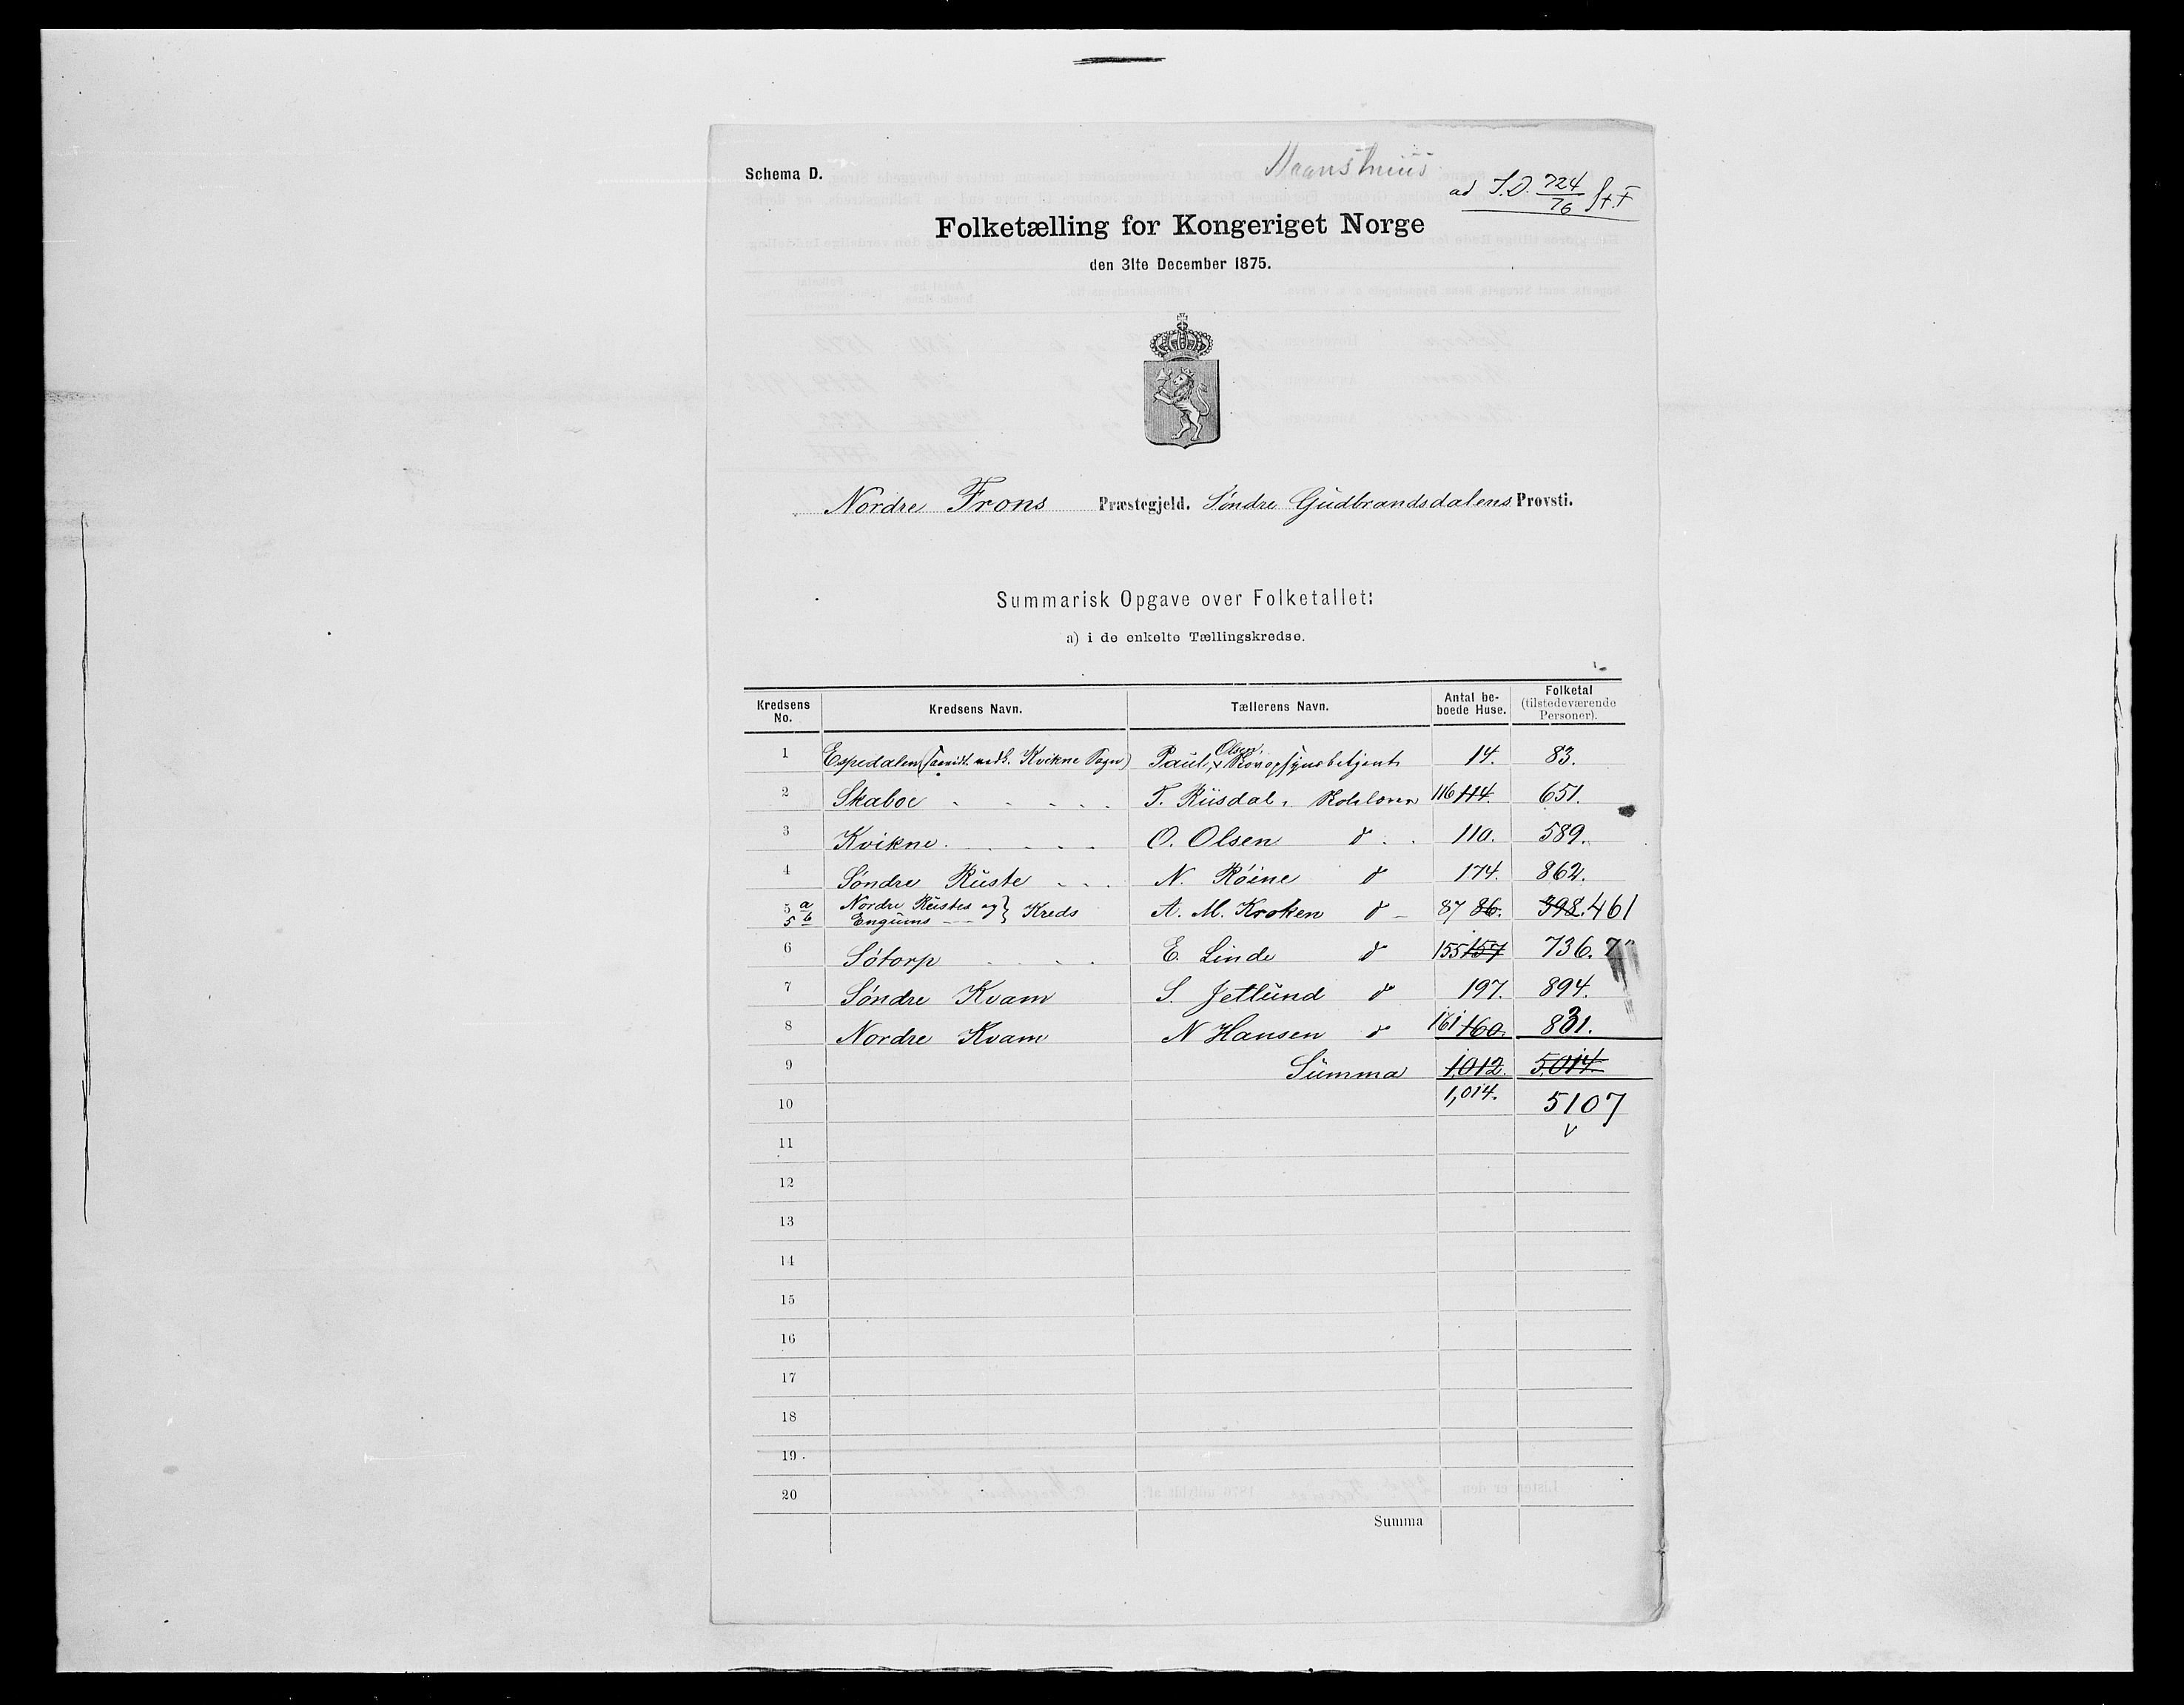 Schema D.
ad J.D. 724/76 St.F
Folketælling for Kongeriget Norge
den 31te December 1875.
Nordre Frons Præstegjeld. Söndre Gudbrandsdalens Provsti.
Summarisk Opgave over Folketallet:
a) i de enkelte Tællingskredse.
Kredsens No. Kredsens Navn. Tællerens Navn. Antal beboede Huse. Folketal (tilstedeværende Personer).
1 Espedalen Kvikne Sogn) Paul Olsen, Skovopsynsbetjent 14. 83.
2 Skaboe T. Rüsdal, Skolelærer 116 114. 651.
3 Kvikne O. Olsen do 110. 589.
4 Söndre Ruste N. Röine do 174. 862.
5 a 5 b Nordre Rustes og Engums } Kreds A. M. Kroken do 87 86. 398. 461
6 Sötorp E. Linde do 155 157 736.
7 Söndre Kvam S. Jetlund do 197. 894.
8 Nordre Kvam N Hansen do 161 160. 831.
9 Summa 1,012. 5,014.
10 1,014. 5107
11
12
13
14
15
16
17
18
19
20
Summa